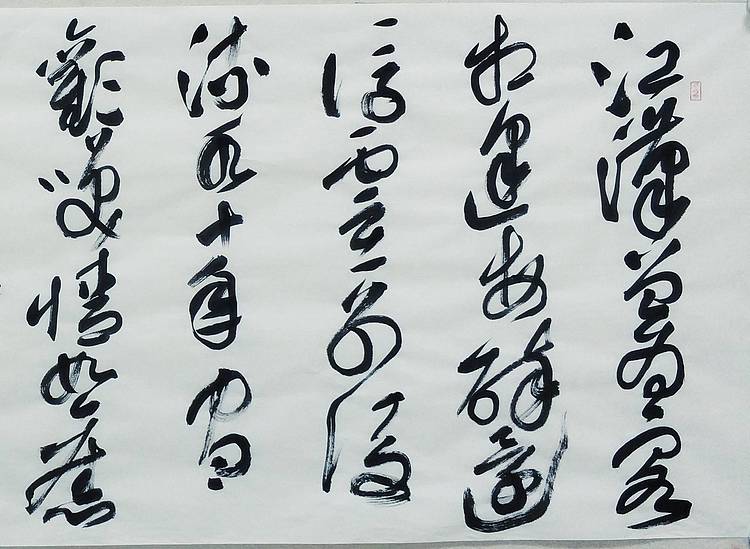 江漢曾為客
相逢每醉還
浮雲一別後
流水十年間
歡笑情如舊